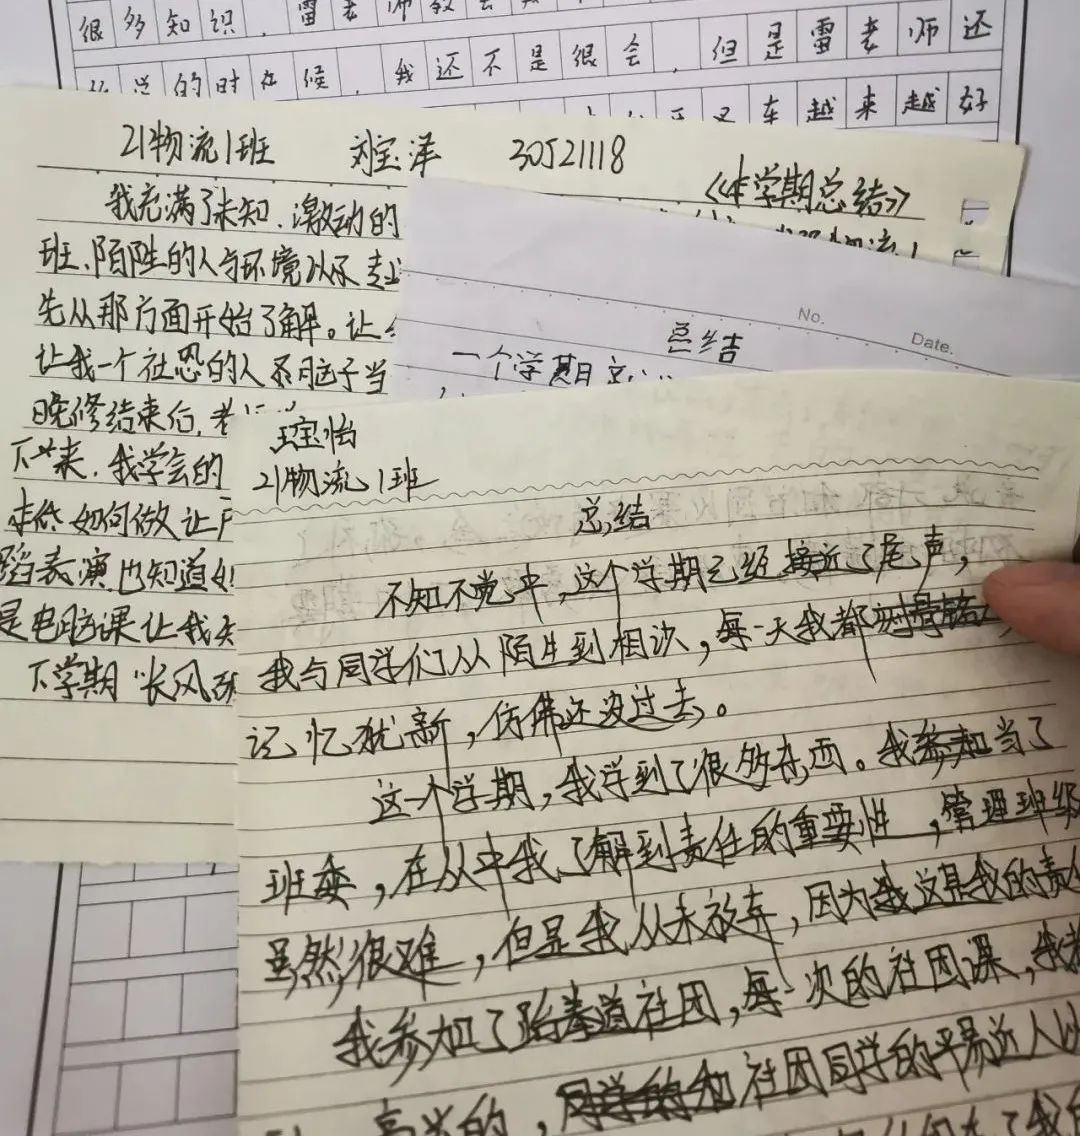 很多知识，雷老师教会
的时候，我还不是很会，但是雷老师还
车越来越好
21物流1班 刘宝泽 30521118
《本学期总结》
我充满了未知、激动的
班、陌陌生的人与环境以及专业
先从那方面开始了解。让
让我一个社恐的人不脑子当
晚修结束后，老
下来，我学会的
如何做让
蹈表演也知道
是电脑课让我
下学期"长风破
No.
Date.
总结
一个学期
王宝怡
21物流1班
总结
不知不觉中，这个学期已经接近了尾声，
我与同学们从陌生到相识，每一天我都刻骨铭
记忆犹新，仿佛还没过去。
这一个学期，我学到了很多东西。我参加当了
班委，在从中我了解到责任的重要性，管理班级
虽然很难，但是我从未放弃，因为我这是我的责任
我参加了跆拳道社团，每一次的社团课，我
高兴的，同学的和社团同学的平易近人以